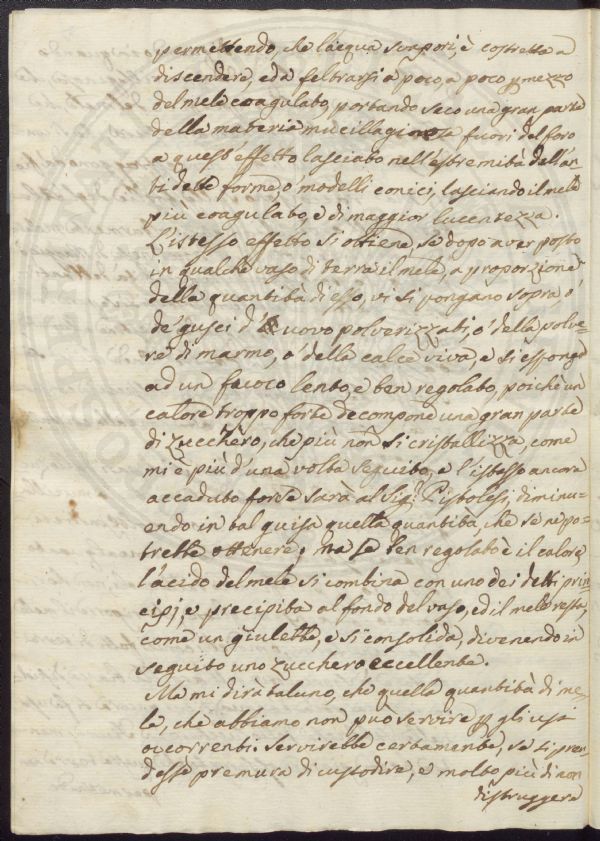 permettendo, che l'acqua svapori, è costretta a
discendere, ed a feltrarsi a poco, a poco p mezzo
del mele coagulato, portando seco una gran parte
della materia mucillaginosa fuori del foro
a quest'effetto lasciato nell'estremità dell'an-
ti dette forme, o' modelli conici, lasciando il mele
più coagulato, e di maggior lucentezza.
L'istesso effetto si ottiene, se dopo aver posto
in qualche vaso di terra il mele, a proporzione
della quantità di esso, vi si pongano sopra o'
de' gusci d'uovo polverizzati, o' della polve-
re di marmo, o' della calce viva, e si esponga
ad un fuoco lento, e ben regolato, poichè un
calore troppo forte decompone una gran parte
di zucchero, che più non si cristallizza, come
mi è più d'una volta seguito, e l'istesso ancora
accaduto forse sarà al Sig: Pistolesi, diminu-
endo in tal guisa quella quantità, che se ne po-
trebbe ottenere; ma se ben regolato è il calore,
l'acido del mele si combina con uno dei detti prin-
cipj, e precipita al fondo del vaso, ed il mele resta,
come un giulebbe, e si consolida, divenendo in
seguito uno zucchero eccellente.
Ma mi dirà taluno, che quella quantità di me-
le, che abbiamo non può servire p gli usi
occorrenti. Servirebbe certamente, se si pren-
desse premura di custodire, e molto più di non
distruggere